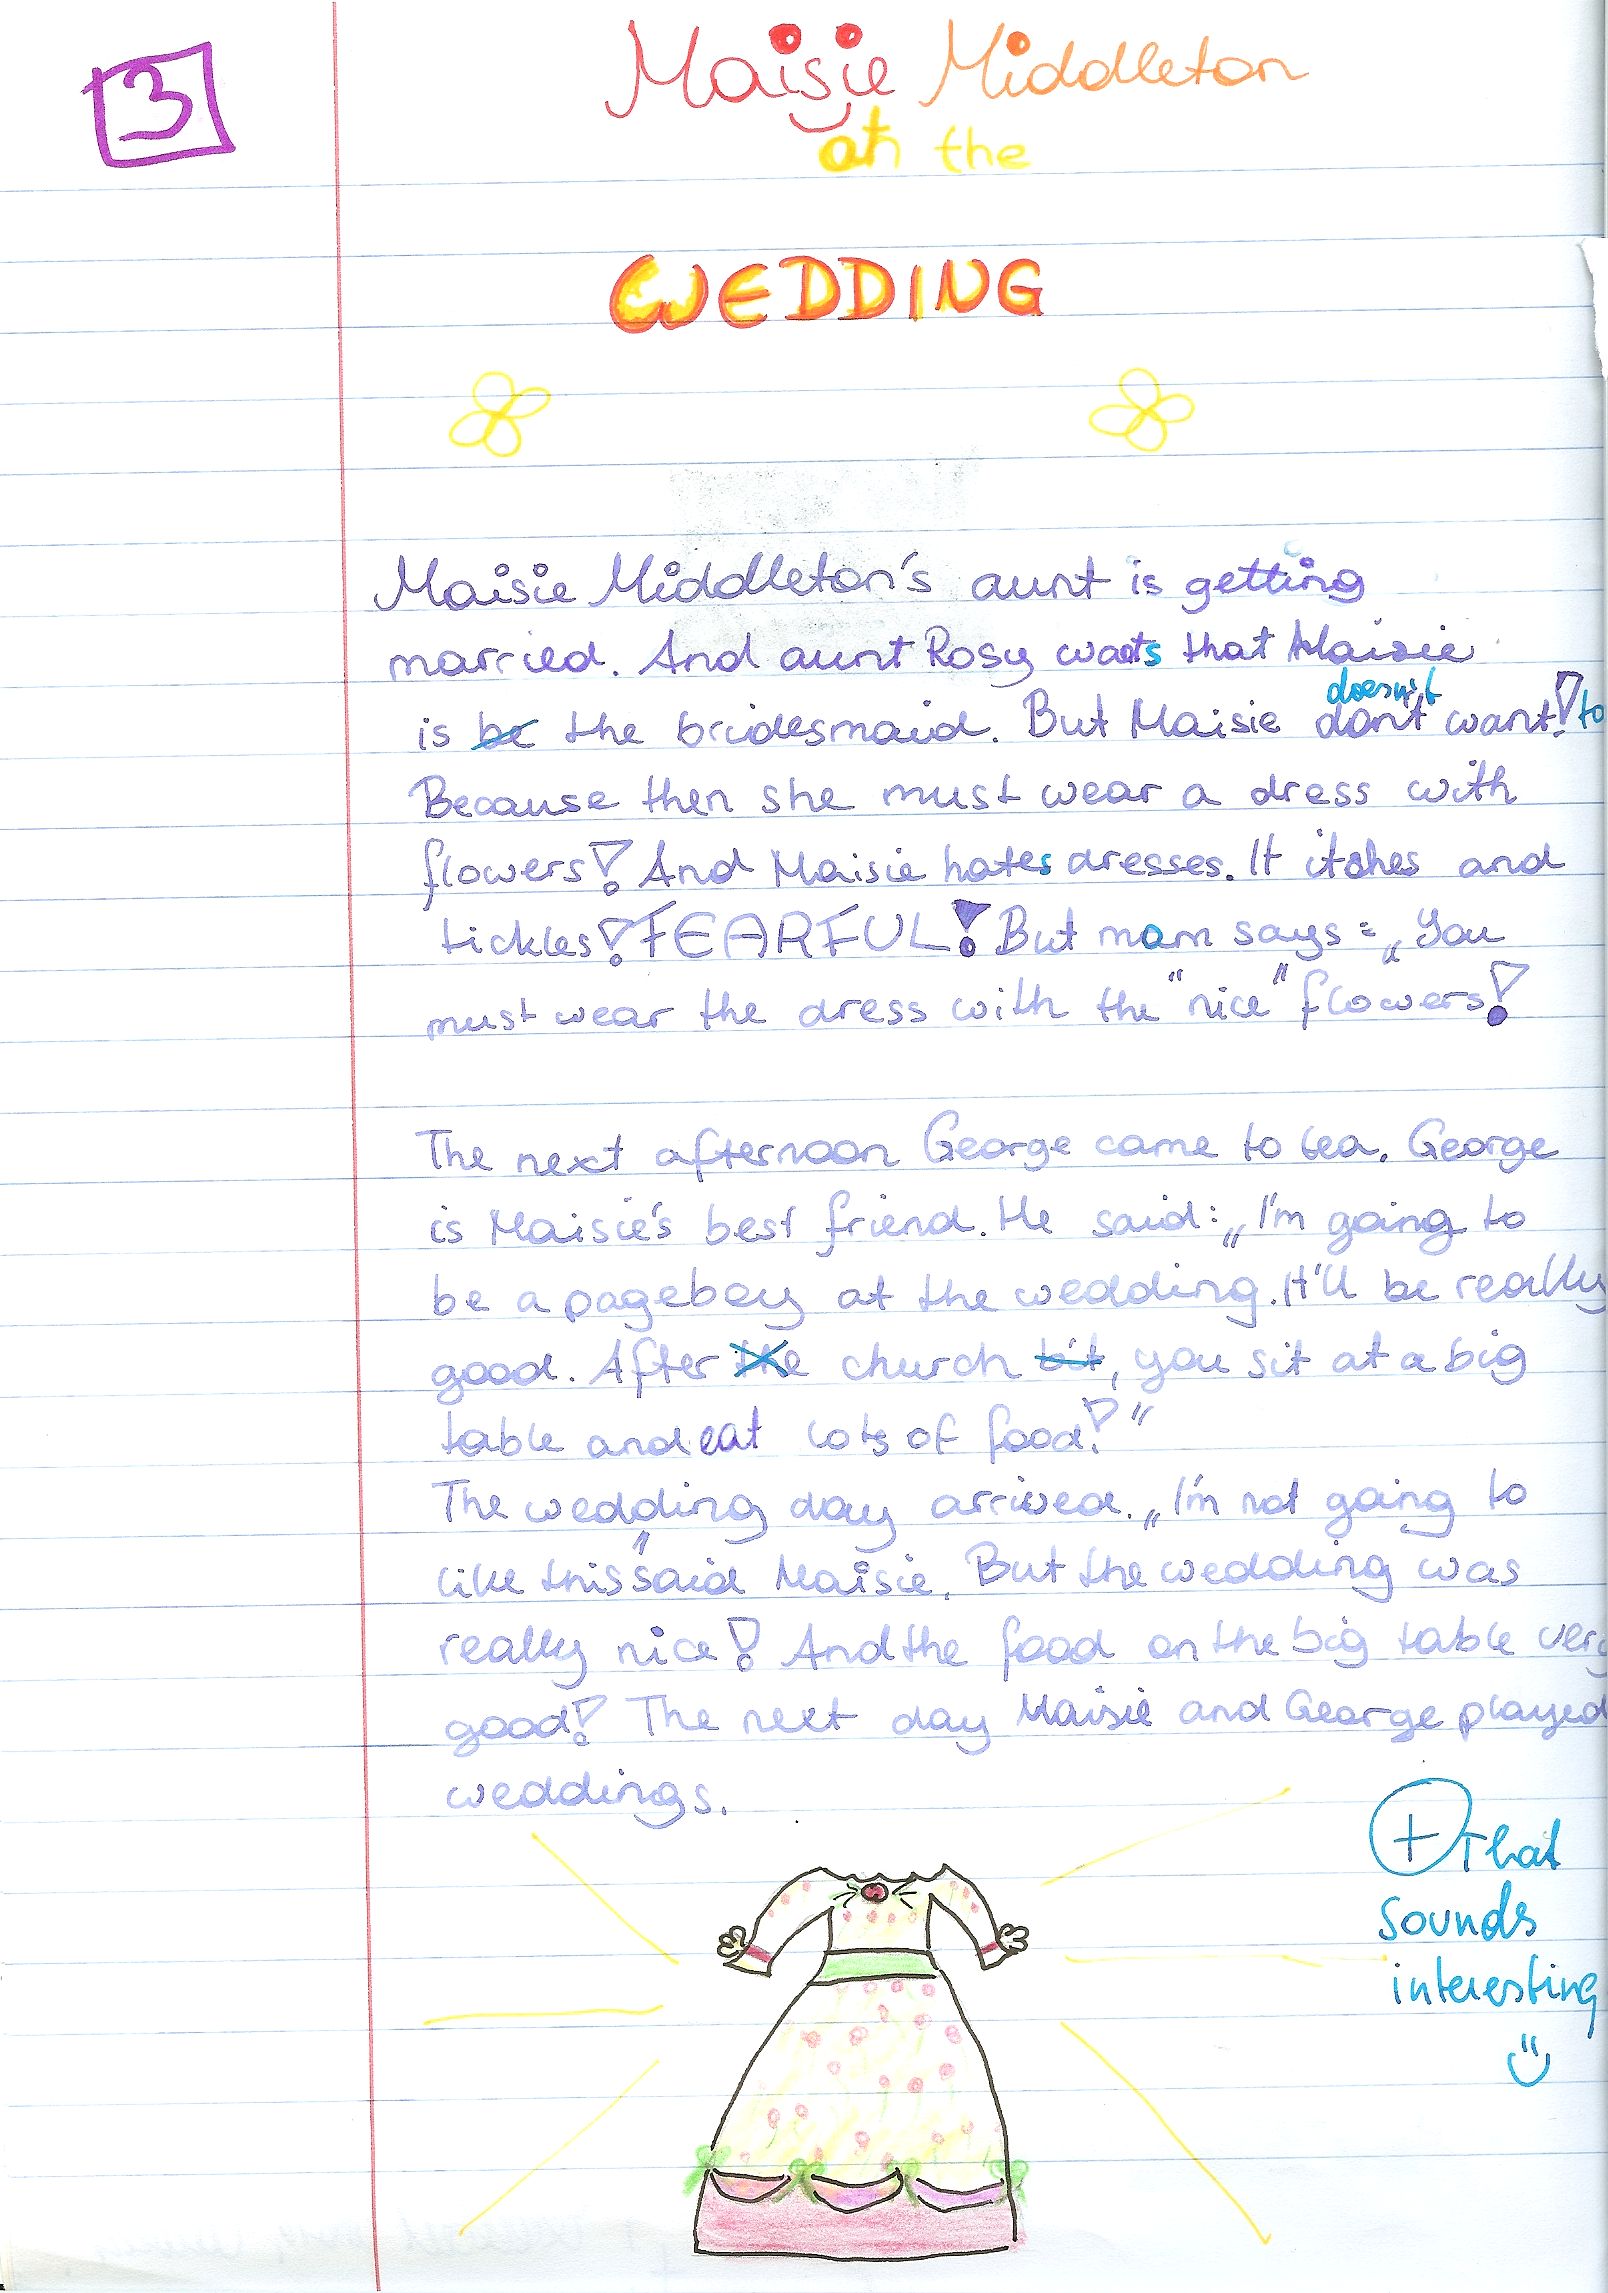 3
Maisie Middleton
at the
WEDDING
Maisie Middleton's aunt is getting
married. And aunt Rosy wants that Maisie
doesn't
is be the bridesmaid. But Maisie don't want! to
Because then she must wear a dress with
flowers! And Maisie hates dresses. It itches and
tickles! FEARFUL! But mom says: „You
must wear the dress with the "nice" flowers!
The next afternoon George came to tea. George
is Maisie's best friend. He said: „I'm going to
be a pageboy at the wedding. It'll be really
good. After the church bit, you sit at a big
table and eat lots of food!"
The wedding day arrived. „I'm not going to
like this" said Maisie. But the wedding was
really nice! And the food on the big table very
good! The next day Maisie and George played
weddings.
+ That
sounds
interesting